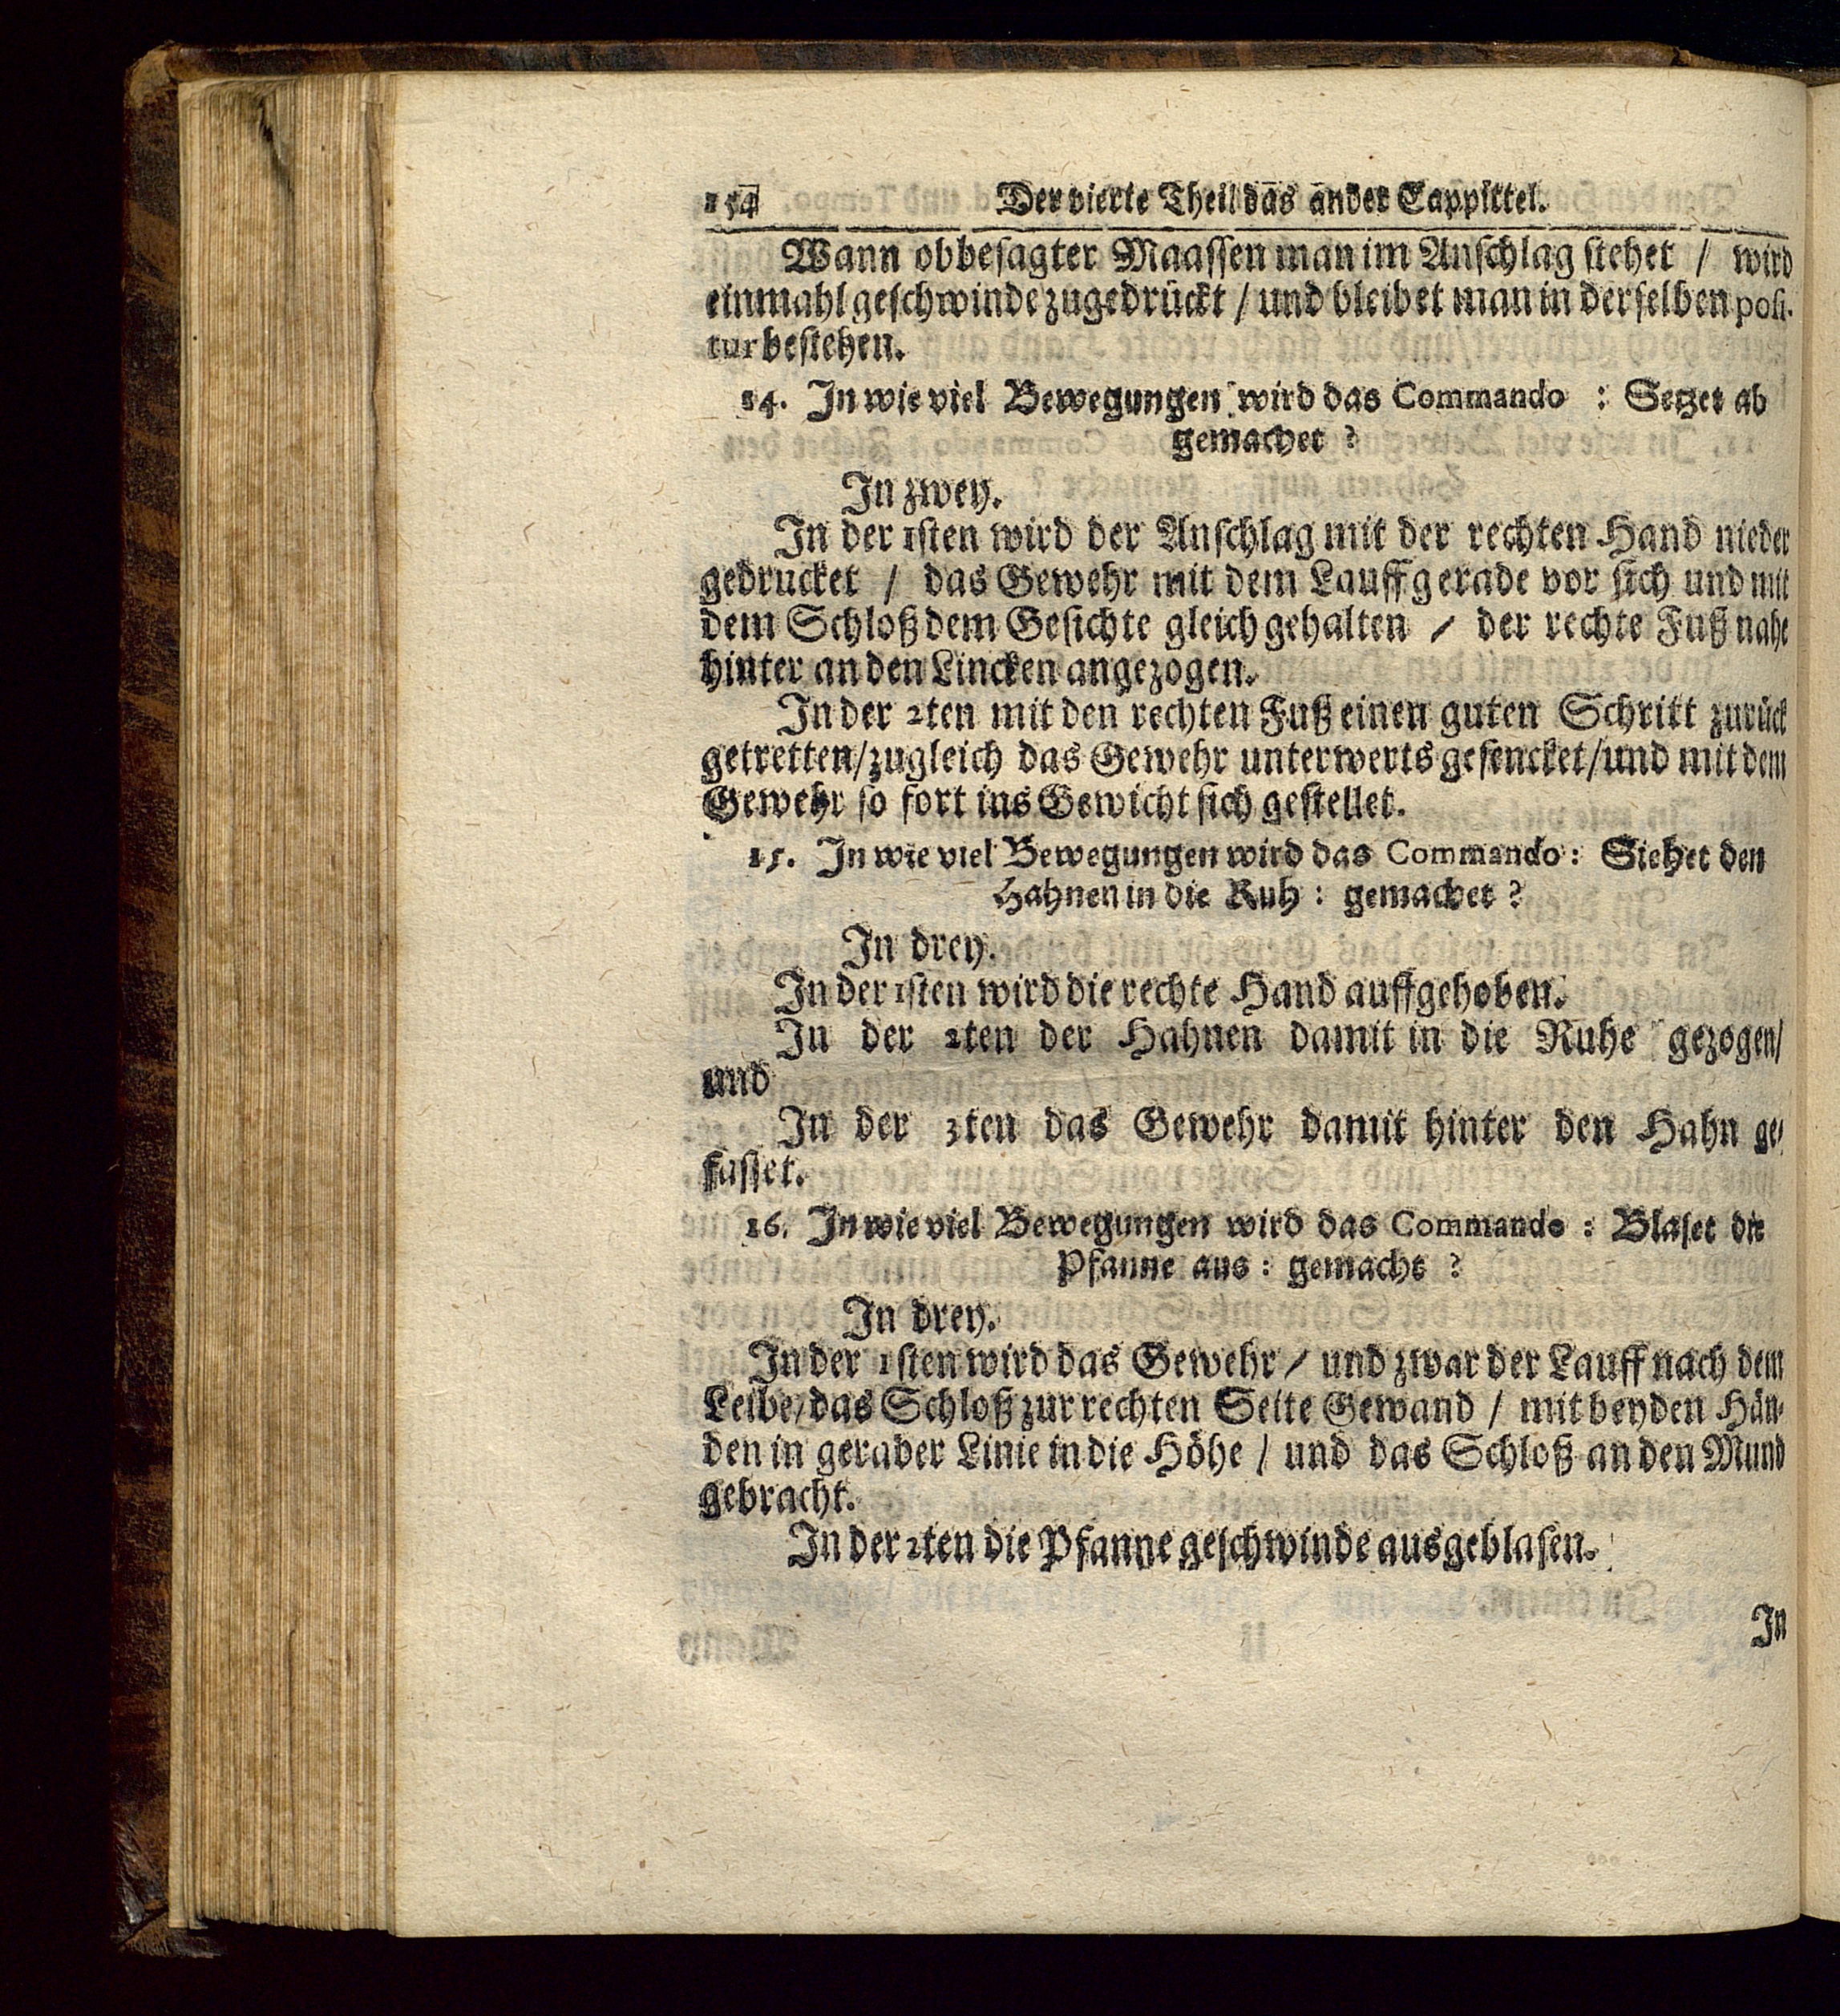 154 Der vierte Theil das ander Cappittel.
Wann obbesagter Maassen man im Anschlag stehet / wird
einmahl geschwinde zugedrückt / und bleibet man in derselben posi-
tur bestehen.
14. In wie viel Bewegungen wird das Commando : Setzet ab
gemachet ?
In zwey.
In der 1sten wird der Anschlag mit der rechten Hand nieder
gedrucket / das Gewehr mit dem Lauff gerade vor sich und mit
dem Schloß dem Gesichte gleich gehalten / der rechte Fuß nahe
hinter an den Lincken angezogen.
In der 2ten mit den rechten Fuß einen guten Schritt zurück
getretten/zugleich das Gewehr unterwerts gesencket/und mit dem
Gewehr so fort ins Gewicht sich gestellet.
15. In wie viel Bewegungen wird das Commando : Siehet den
Hahnen in die Ruh : gemachet ?
In drey.
In der 1sten wird die rechte Hand auffgehoben.
In der 2ten der Hahnen damit in die Ruhe gezogen/
und
In der 3ten das Gewehr damit hinter den Hahn ge-
fasset.
16. In wie viel Bewegungen wird das Commando : Blaset die
Pfanne aus : gemacht ?
In drey.
In der 1sten wird das Gewehr / und zwar der Lauff nach dem
Leibe/das Schloß zur rechten Seite Gewand / mit beyden Hän-
den in gerader Linie in die Höhe / und das Schloß an den Mund
gebracht.
In der 2ten die Pfanne geschwinde ausgeblasen.
In